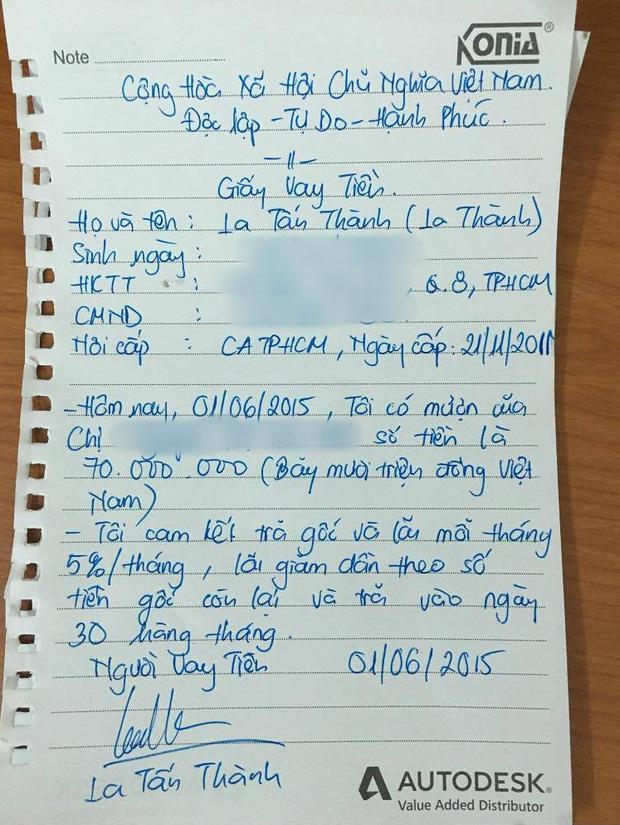 Note
KONIA®
Cộng Hòa Xã Hội Chủ Nghĩa Việt Nam.
Độc lập - Tự Do - Hạnh Phúc.
-11-
Giấy Vay Tiền.
Họ và tên : La Tấn Thành (La Thành)
Sinh ngày :
HKTT : , Q.8, TPHCM
CMND :
Nơi cấp : CA TPHCM, Ngày cấp: 21/11/2011
- Hôm nay, 01/06/2015, Tôi có mượn của
Chị số tiền là
70.000.000 (Bảy mươi triệu đồng Việt
Nam)
- Tôi cam kết trả gốc và lãi mỗi tháng
5%/tháng, lãi giảm dần theo số
tiền gốc còn lại và trả vào ngày
30 hàng tháng.
Người Vay Tiền 01/06/2015
La Tấn Thành
AUTODESK®
Value Added Distributor